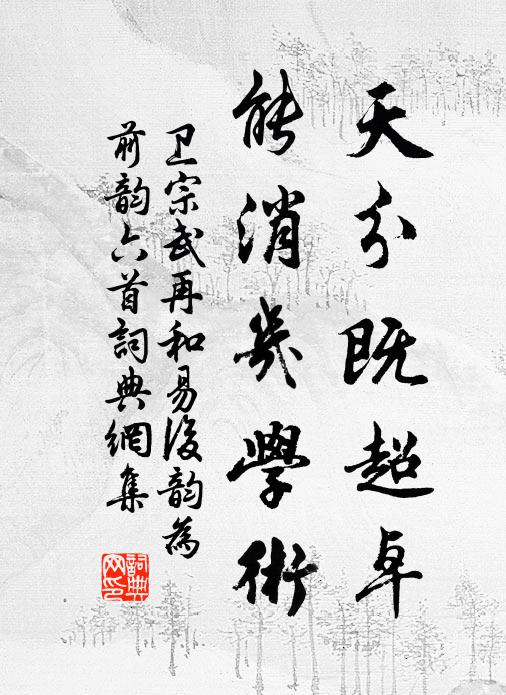 天分既超卓
能消几學術
卫宗武再和易後韵為
前韵六首詞典網集
詞典网印